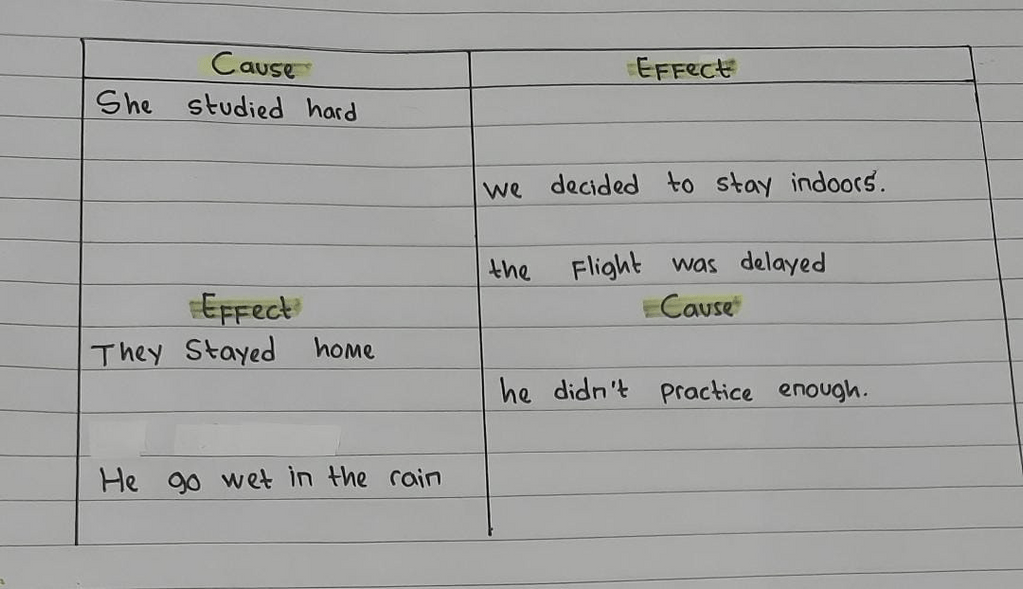 Cause Effect
She studied hard
we decided to stay indoors.
the Flight was delayed
Effect Cause
They Stayed home
he didn't practice enough.
He go wet in the rain